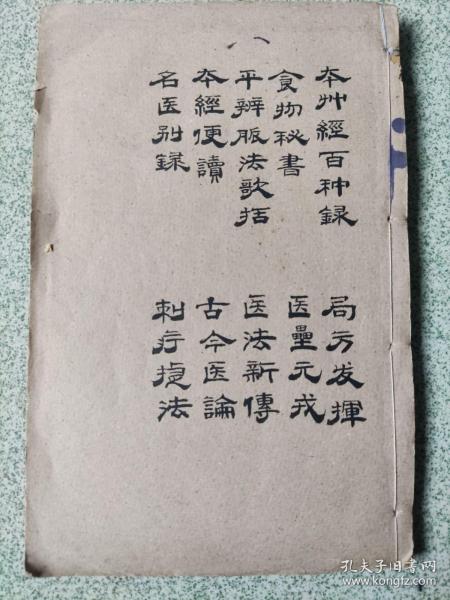 本艸經百种録
食物秘書
平辨脈法歌括
本經便讀
名医别録
局方发揮
医壘元戎
医法新傳
古今医論
刺疔捷法
孔夫子旧書网
www.kongfz.com